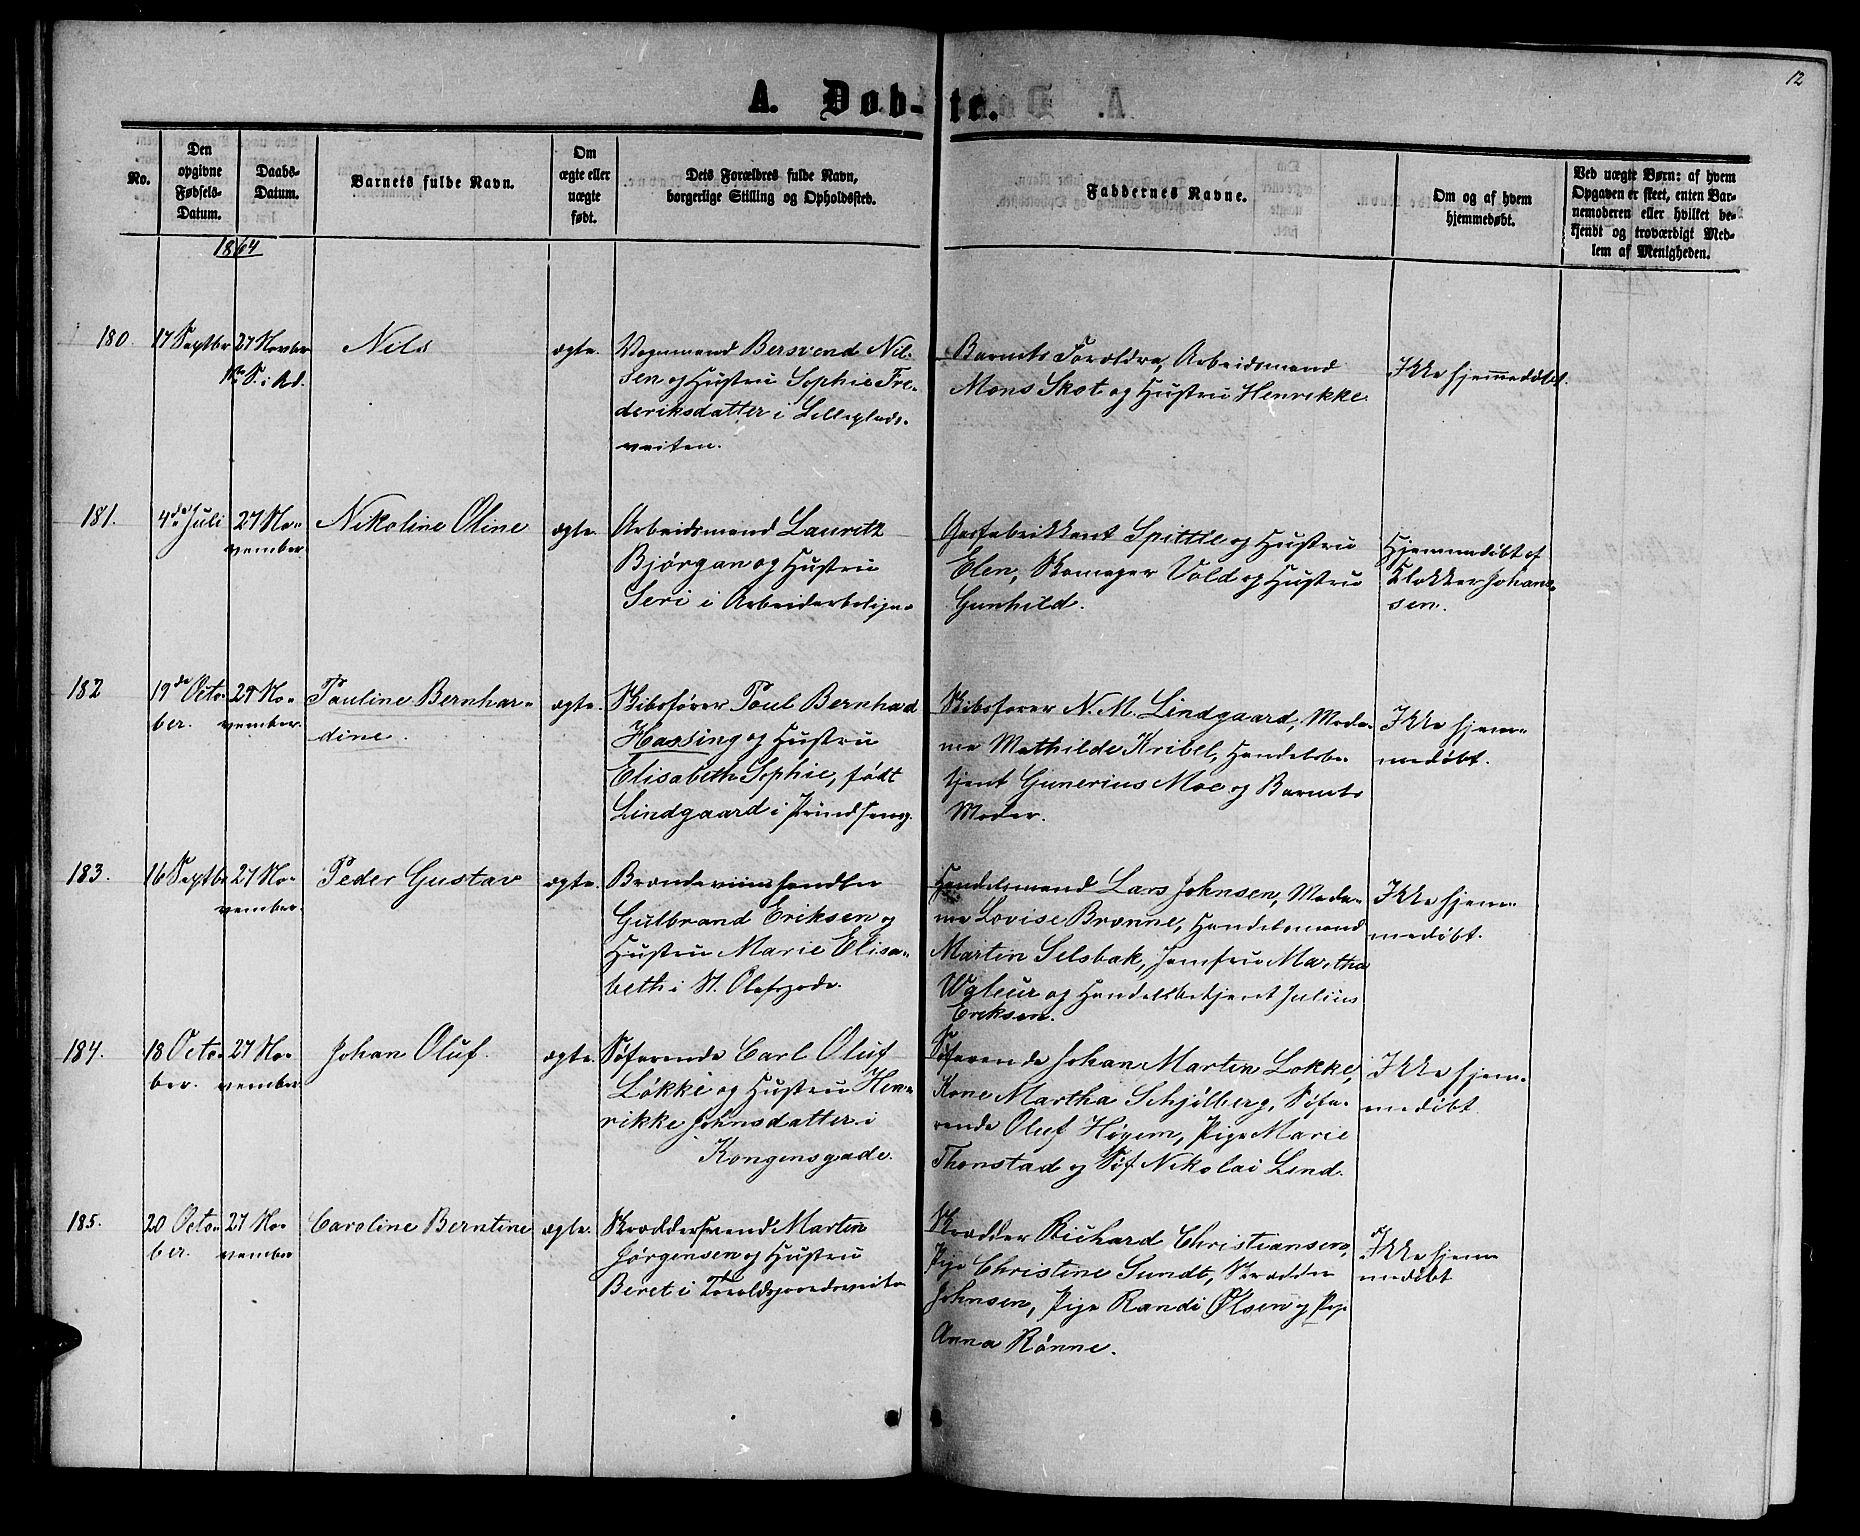 12
A. Døb-te.
No.
Den
opgivne
Fødsels-
Datum.
Daabs-
Datum.
Barnets fulde Navn.
Om
ægte eller
uægte
født.
Dets Forældres fulde Navn,
borgerlige Stilling og Opholdssted.
Faddernes Navne.
Om og af hvem
hjemmedøbt.
Ved uægte Børn: af hvem
Opgaven er skeet, enten Bar-
nemoderen eller hvilket be-
kjendt og troværdigt Med-
lem af Menigheden.
1864
180.
17 Septbr
27 Novbr
1ste S. i Ad.
Nils
ægte.
Vognmand Bersvend Nil-
sen og Hustru Sophie Fre-
deriksdatter i Lilleplads-
veiten.
Barnets Forældre, Arbeidsmand
Mons Skot og Hustru Henrikke.
Ikke hjemmedøbt.
181.
4de Juli
27 No-
vember.
Nikoline Oline
ægte.
Arbeidsmand Lauretz
Bjørgan og Hustru
Seri i Arbeiderbolign-
Gasfabrikkant Spittle og Hustru
Elen, Skomager Vold og Hustru
Gunhild.
Hjemmedøbt af
Klokker Johan-
sen.
182
19de Octo-
ber.
27 No-
vember.
Pauline Bernhar-
dine.
ægte.
Skibsfører Poul Bernhad
Hassing og Hustru
Elisabeth Sophie, født
Lindgaard i Prindseng.
Skibsfører N. M. Lindgaard, Mada-
me Mathilde Kribel, Handelsbe-
tjent Gunerius Moe og Barnets
Moder.
Ikke hjem-
medøbt.
183.
16 Septbr
27 No-
vember.
Peder Gustav
ægte.
Brændeviinshandler
Gulbrand Eriksen og
Hustru Marie Elisa-
beth i St. Olafsgade.
Handelsmand Lars Johnsen, Mada-
me Lovise Brønne, Handelsmand
Martin Selsbak, Jomfru Martha
og Handelsbetjent Julius
Eriksen.
Ikke hjem-
medøbt.
184.
18 Octo-
ber.
27 No-
vember
Johan Oluf.
ægte.
Søfarende Carl Oluf
Løkke og Hustru Hen-
rikke Johnsdatter i
Kongensgade.
Søfarende Johan Martin Løkke,
Kone Martha Schjølberg, Søfa-
rende Oluf Høyem, Pige Marie
Thonstad og Søf. Nikolai Lind.
Ikke hjem-
medøbt.
185.
20 Octo-
ber.
27 No-
vember
Caroline Berntine
ægte.
Skræddersvend Martin
Jørgensen og Hustru
Beret i Toroldsgaardsveite
Skrædder Richard Christiansen,
Pige Christine Sundt, Skrædder
Johnsen, Pige Randi Olsen og Pige
Anna Rønne.
Ikke hjem-
medøbt